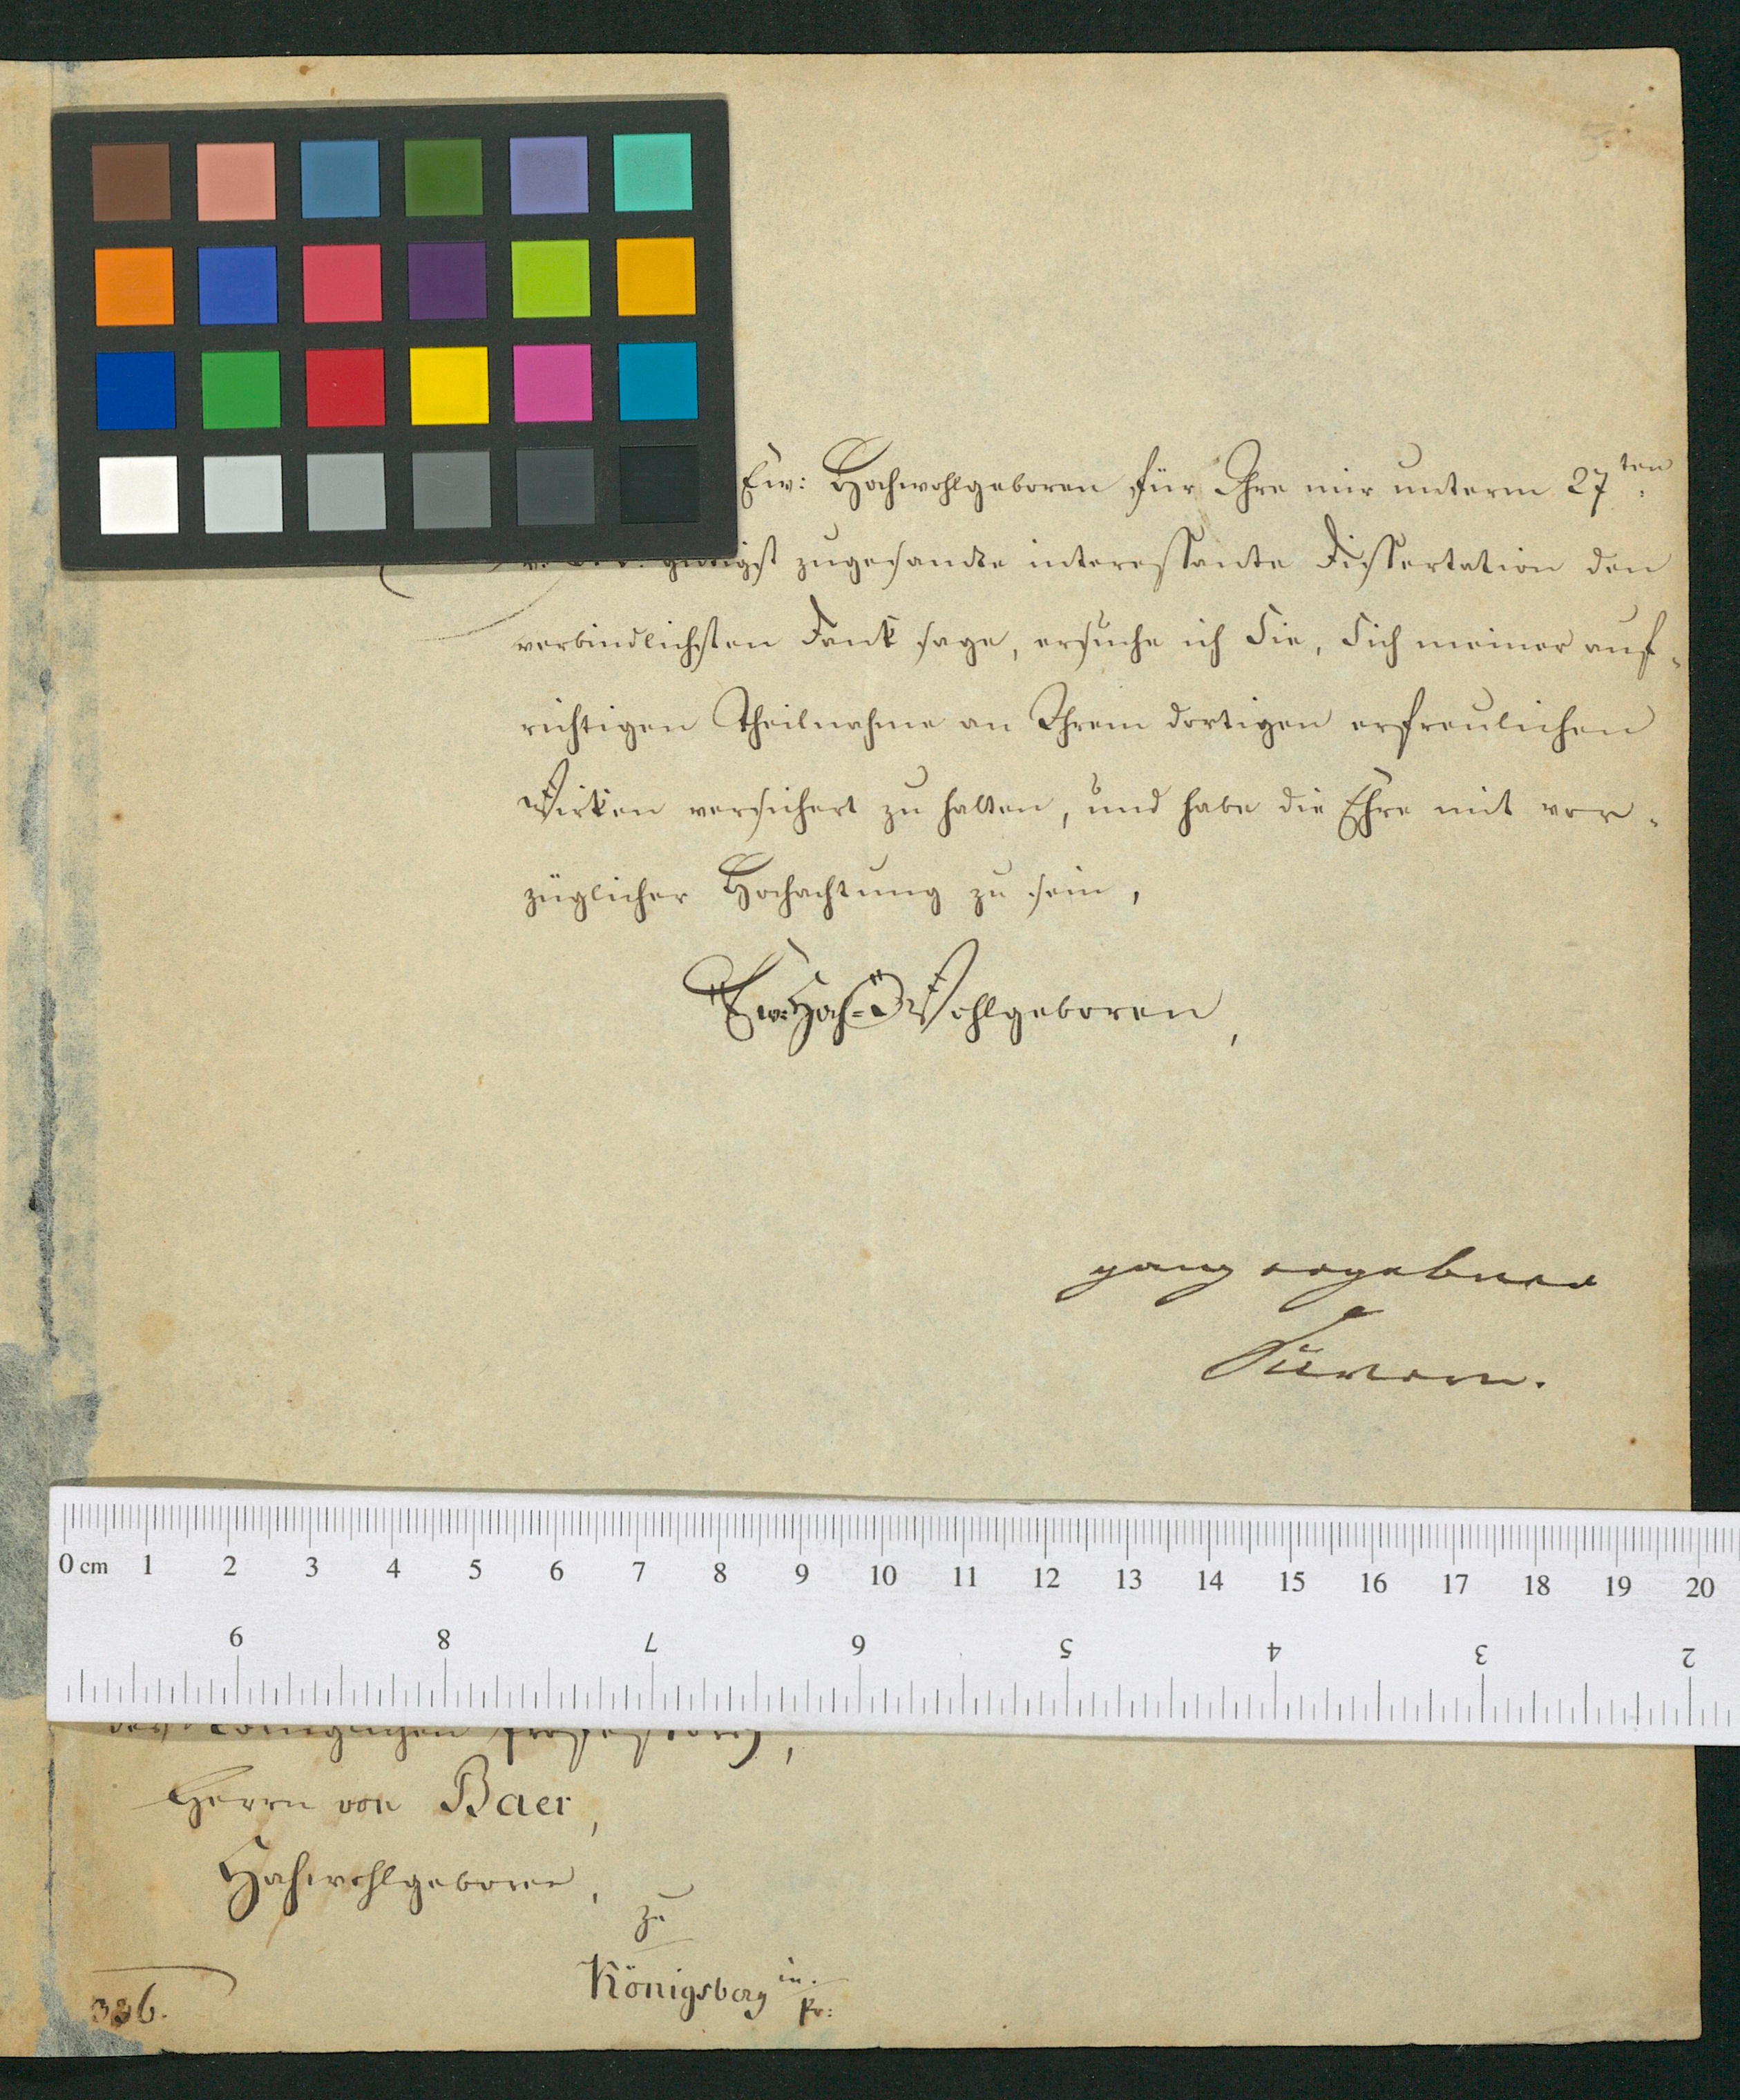 Ew: Hochwohlgeboren für Ihre mir unterm 27ten
gütigst zugesandte interessante Dissertation den
verbindlichsten Dank sage, ersuche ich Sie, Sich meiner auf-
richtigen Theilnahme an Ihrem dortigen erfreulichen
Wirken versichert zu halten, und habe die Ehre mit vor-
züglicher Hochachtung zu sein,
Ew: Hoch- Wohlgeboren,
ganz ergebner
0 cm 1 2 3 4 5 6 7 8 9 10 11 12 13 14 15 16 17 18 19 20
9 8 7 6 5 4 3 2
des Königlichen Professors,
Herrn von Baer,
Hochwohlgeboren,
zu
Königsberg in
Pr:
336.